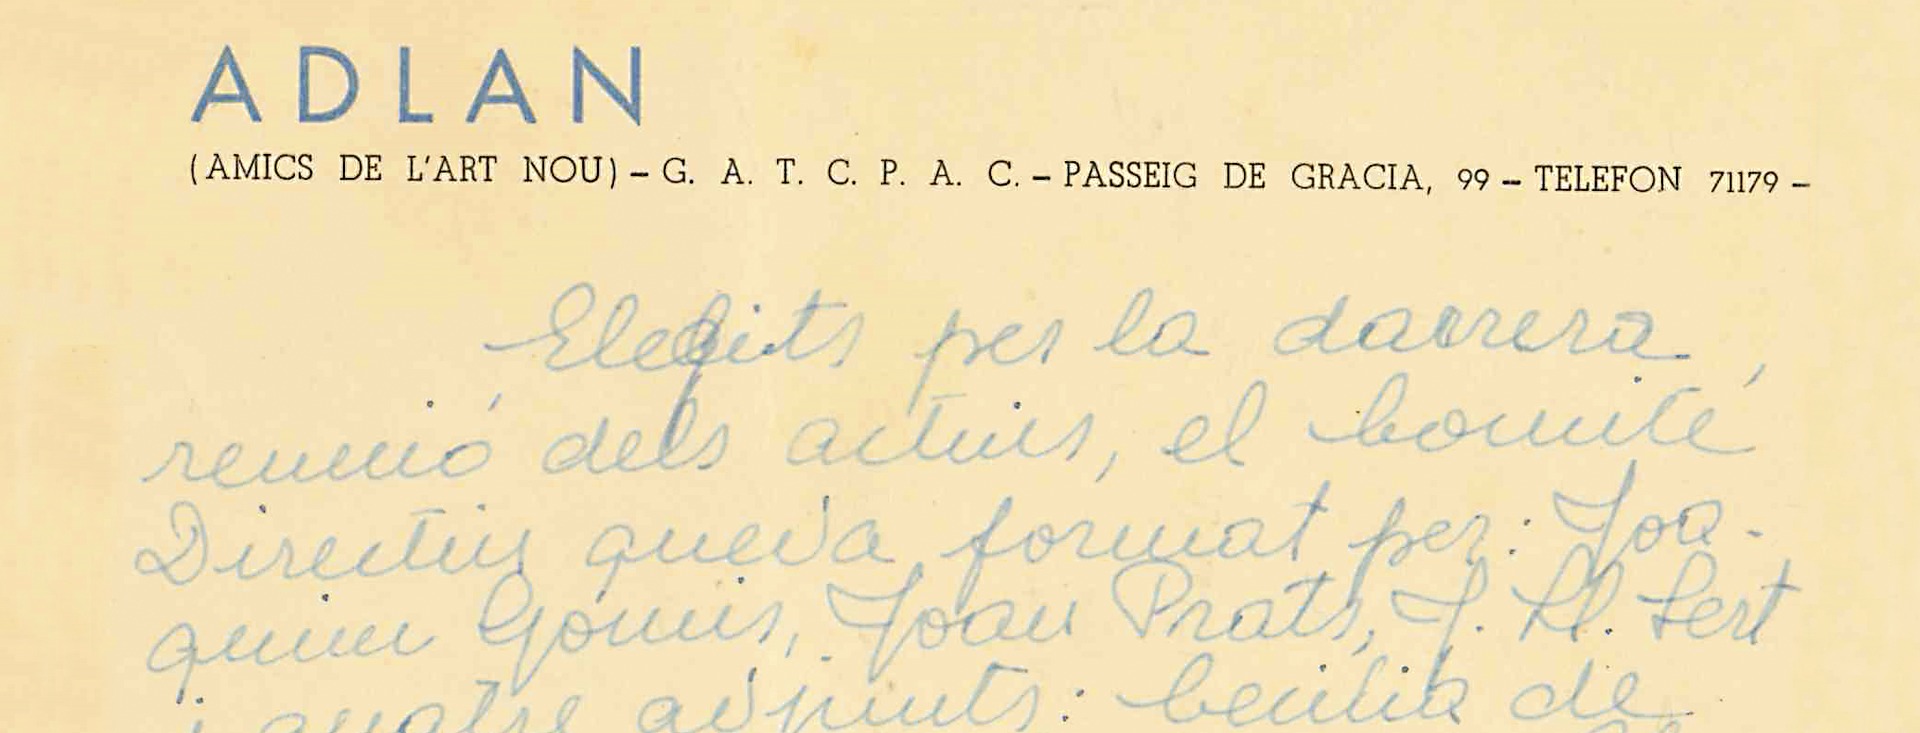 ADLAN
(AMICS DE L'ART NOU) – G. A. T. C. P. A. C. – PASSEIG DE GRACIA, 99 – TELEFON 71179 –
Elegits per la darrera
reunió dels actius, el Comité
Directiu queda format per: Joa-
quim Gomis, Joan Prats, J. Ll. Sert
i quatre adjunts: Cecilia de